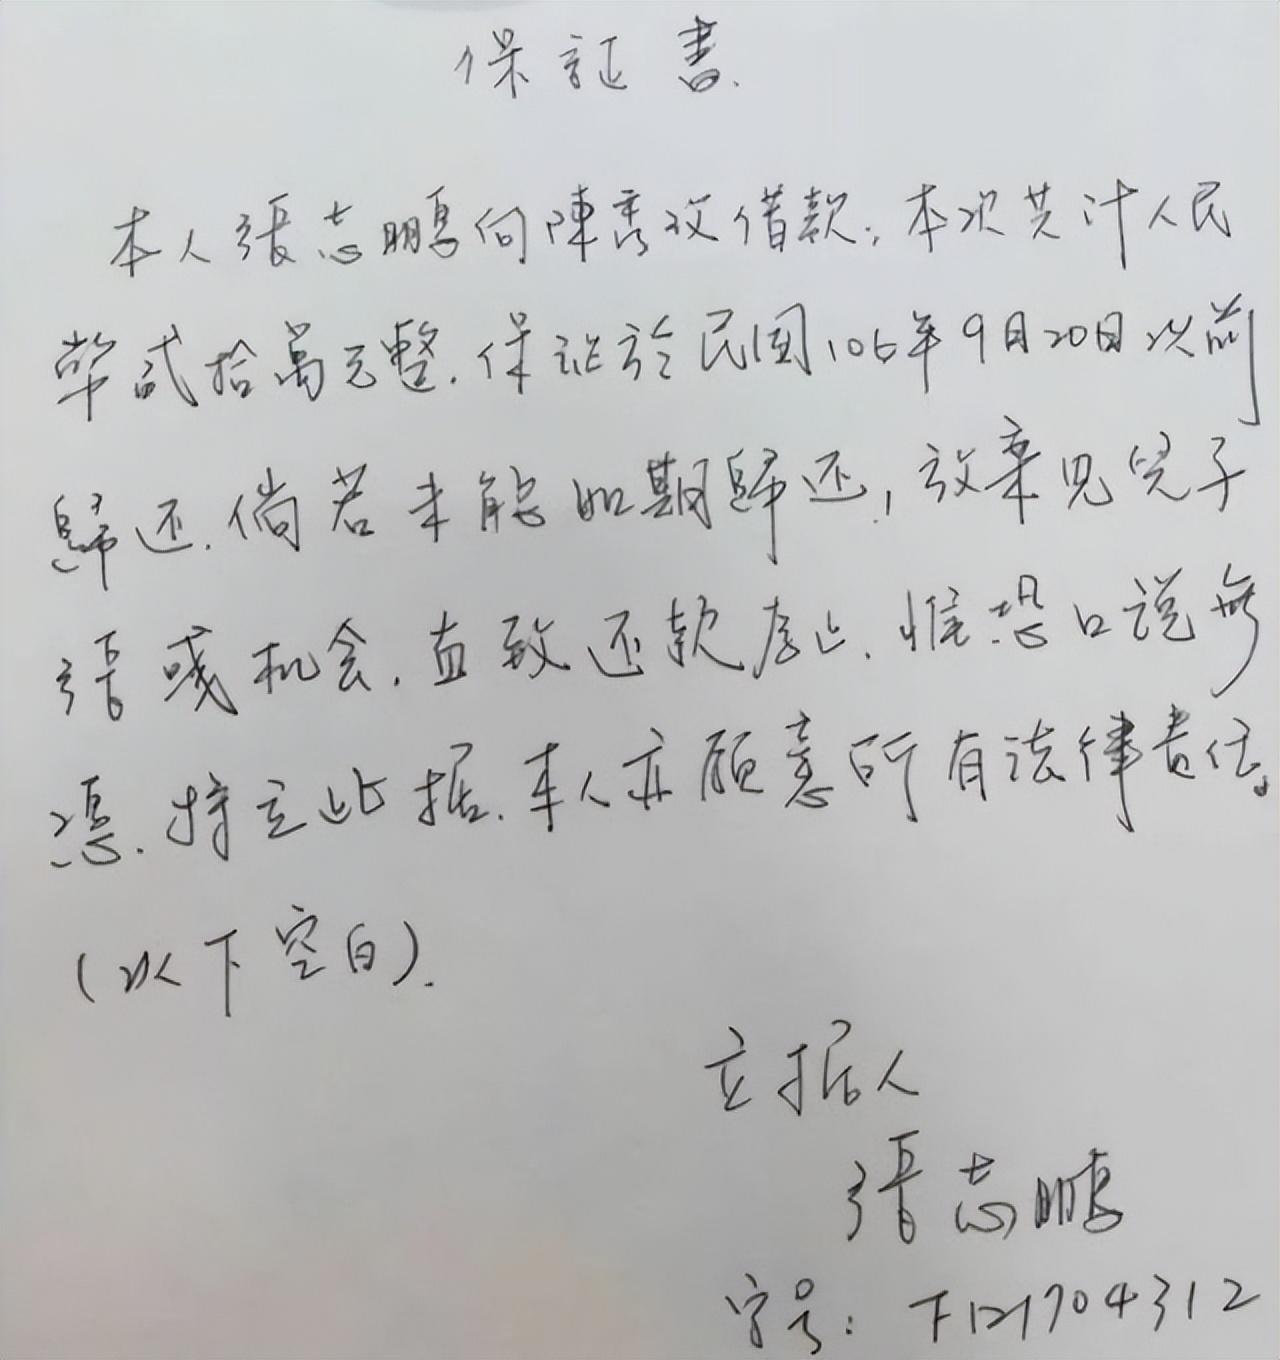 保証書.
本人張志鵬向陳秀玫借款,本次共計人民
幣貳拾萬元整.保証於民國106年9月20日以前
歸还.倘若未能如期歸还,放棄見兒子
張 机会.直致还款為止.惟恐口說無
憑.特立此据.本人亦願意所有法律責任。
(以下空白).
立据人
張志鵬
字号:F121704312